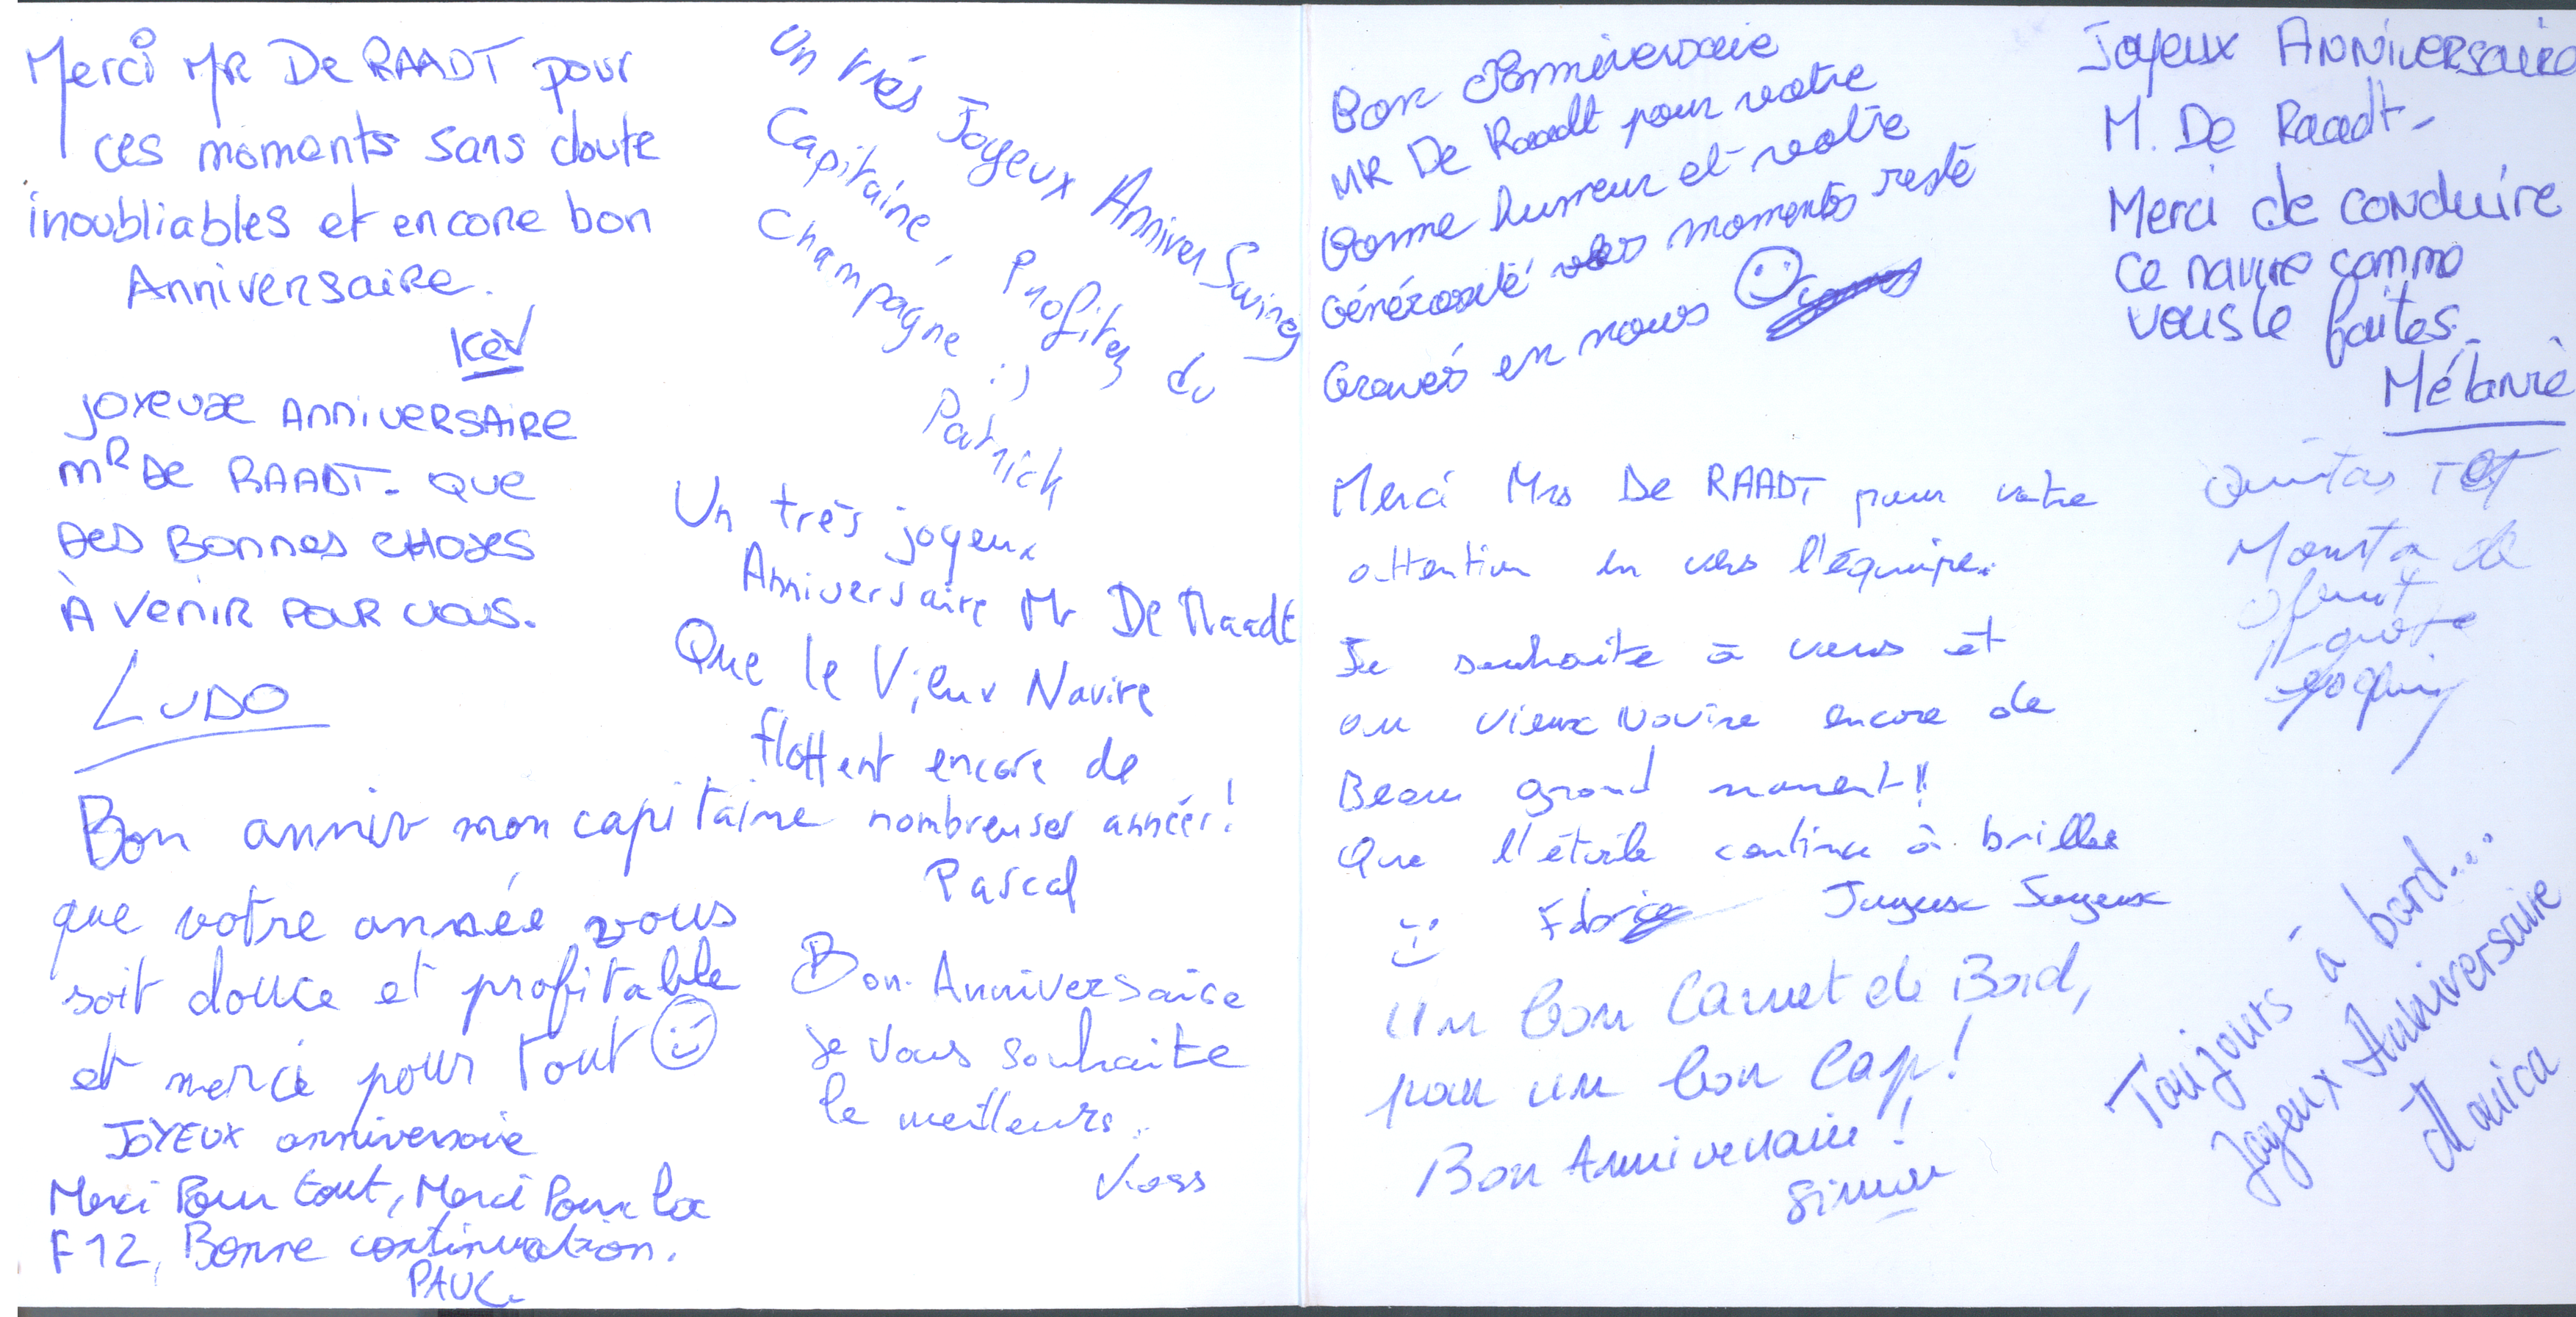 Merci MR De RAADT pour
ces moments sans doute
inoubliables et encore bon
Anniversaire.
Kev
JOYEUX ANNIVERSAIRE
MR De RAADT. QUE
DES BONNES CHOSES
À VENIR POUR VOUS.
LUDO
Bon anniv mon capitaine
que votre année vous
soit douce et profitable
et merci pour tout
JOYEUX anniversaire
Merci Pour tout, Merci Pour la
F12, Bonne continuation.
PAUL.
Un très Joyeux Anniver Swing
Capitaine, Profitez du
Champagne :)
Patrick
Un très joyeux
Anniversaire Mr De Raadt
Que le Vieux Navire
flottent encore de
nombreuses années!
Pascal
Bon Anniversaire
Je vous souhaite
le meilleurs.
Bon Anniversaire
MR De Raadt pour votre
bonne humeur et votre
générosité vos moments reste
Gravés en nous
Merci Mrs De RAADT pour votre
attention en vers l'équipe.
Je souhaite à vous et
au vieux Navire encore de
Beau grand moment!!
Que l'étoile continue à briller
Fabrice Joyeux Joyeux
:)
Un bon Carnet de Bord,
pour un bon Cap!
Bon Anniversaire!
Simon
Joyeux ANNIVERSAIRE
M. De Raadt-
Merci de conduire
ce navire comme
vous le faites.
Mélanie
Toujours à bord...
Joyeux Anniversaire